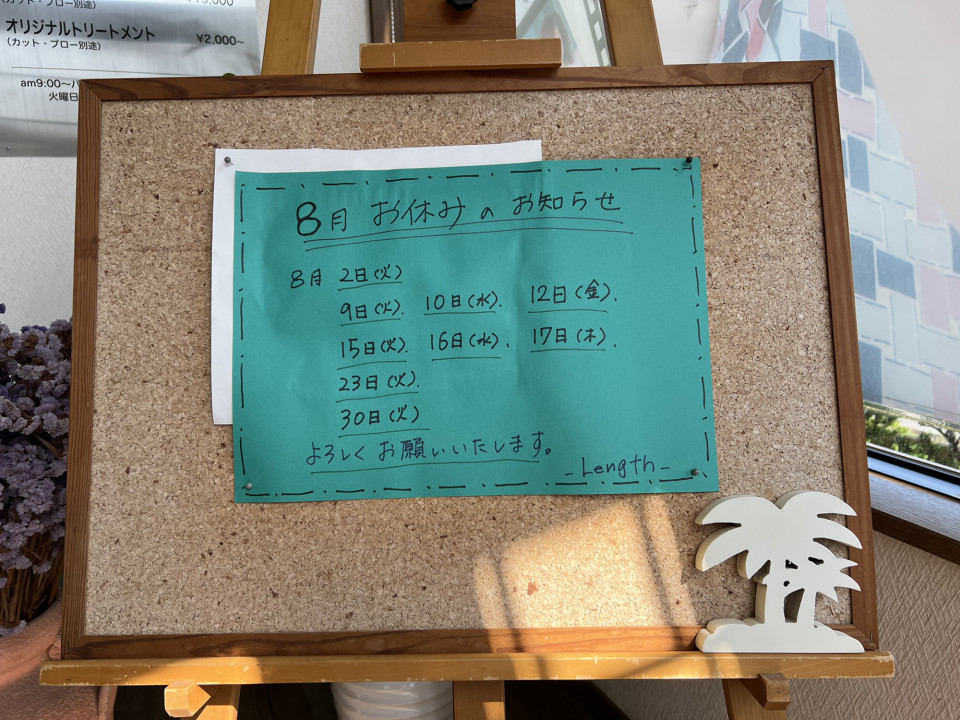 オリジナルトリートメント ¥2,000~
(カット・ブロー別途)
am9:00~
火曜日
8月 お休みの お知らせ
8月 2日(火)
9日(火). 10日(水). 12日(金).
15日(火). 16日(水). 17日(木)
23日(火).
30日(火)
よろしく お願いいたします。
-Length-